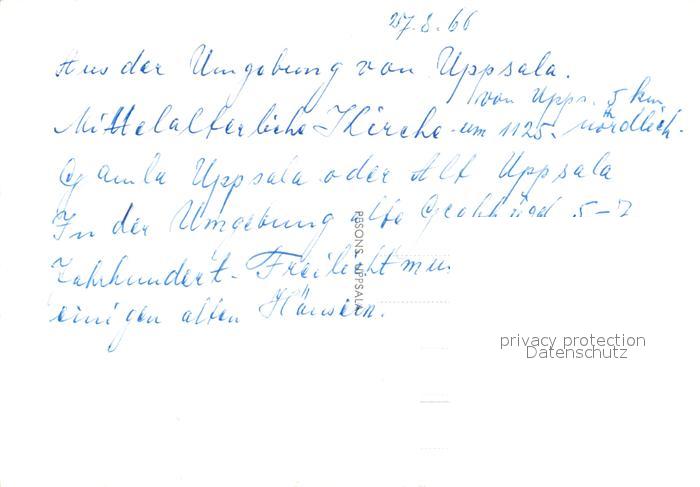 27.8.66
Aus der Umgebung von Uppsala.
von Upps. 5 km
Mittelalterliche-Kirche um 1125. nördlich.
Gamla Uppsala oder Alt Uppsala
In der Umgebung alte 5-7
Jahrhundert. Freilichtmus.
einigen alten Häusern.
PESONS UPPSALA
privacy protection
Datenschutz